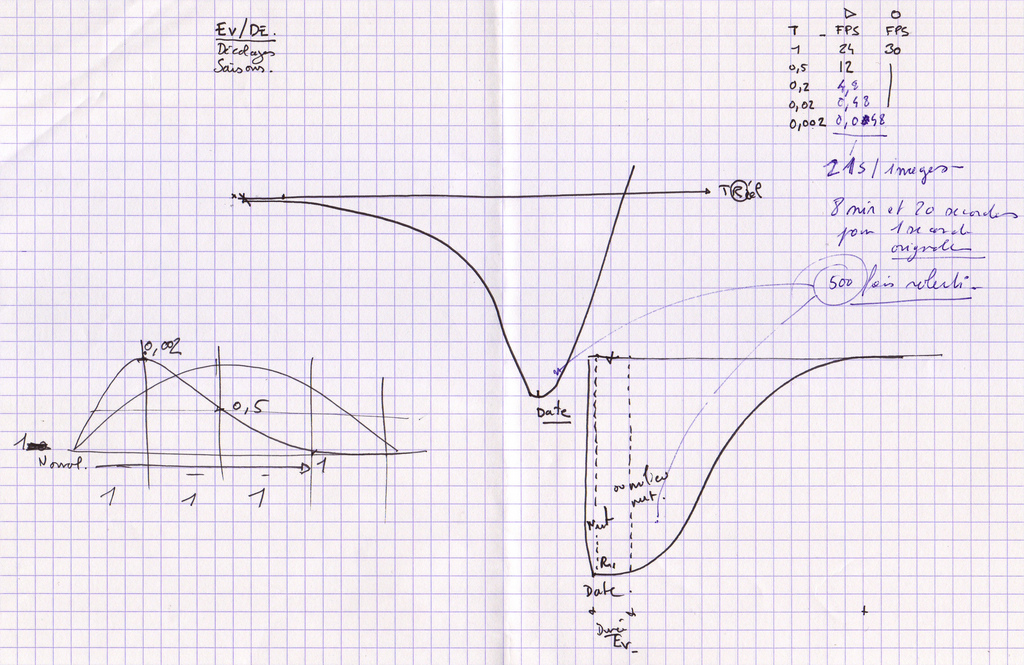 Ev/DE.
Décalages
Saisons.
▷ O
T - FPS FPS
1 24 30
0,5 12
0,2 4,8
0,02 0,48
0,002 0,048
21s/images
8 min et 20 secondes
pour 1 seconde
originale
500 fois ralenti
T Réel
Date
0,002
0,5
1
Normal.
1
1 1 1
ou milieu
nuit.
Nuit
R.
Date.
Durée
Ev